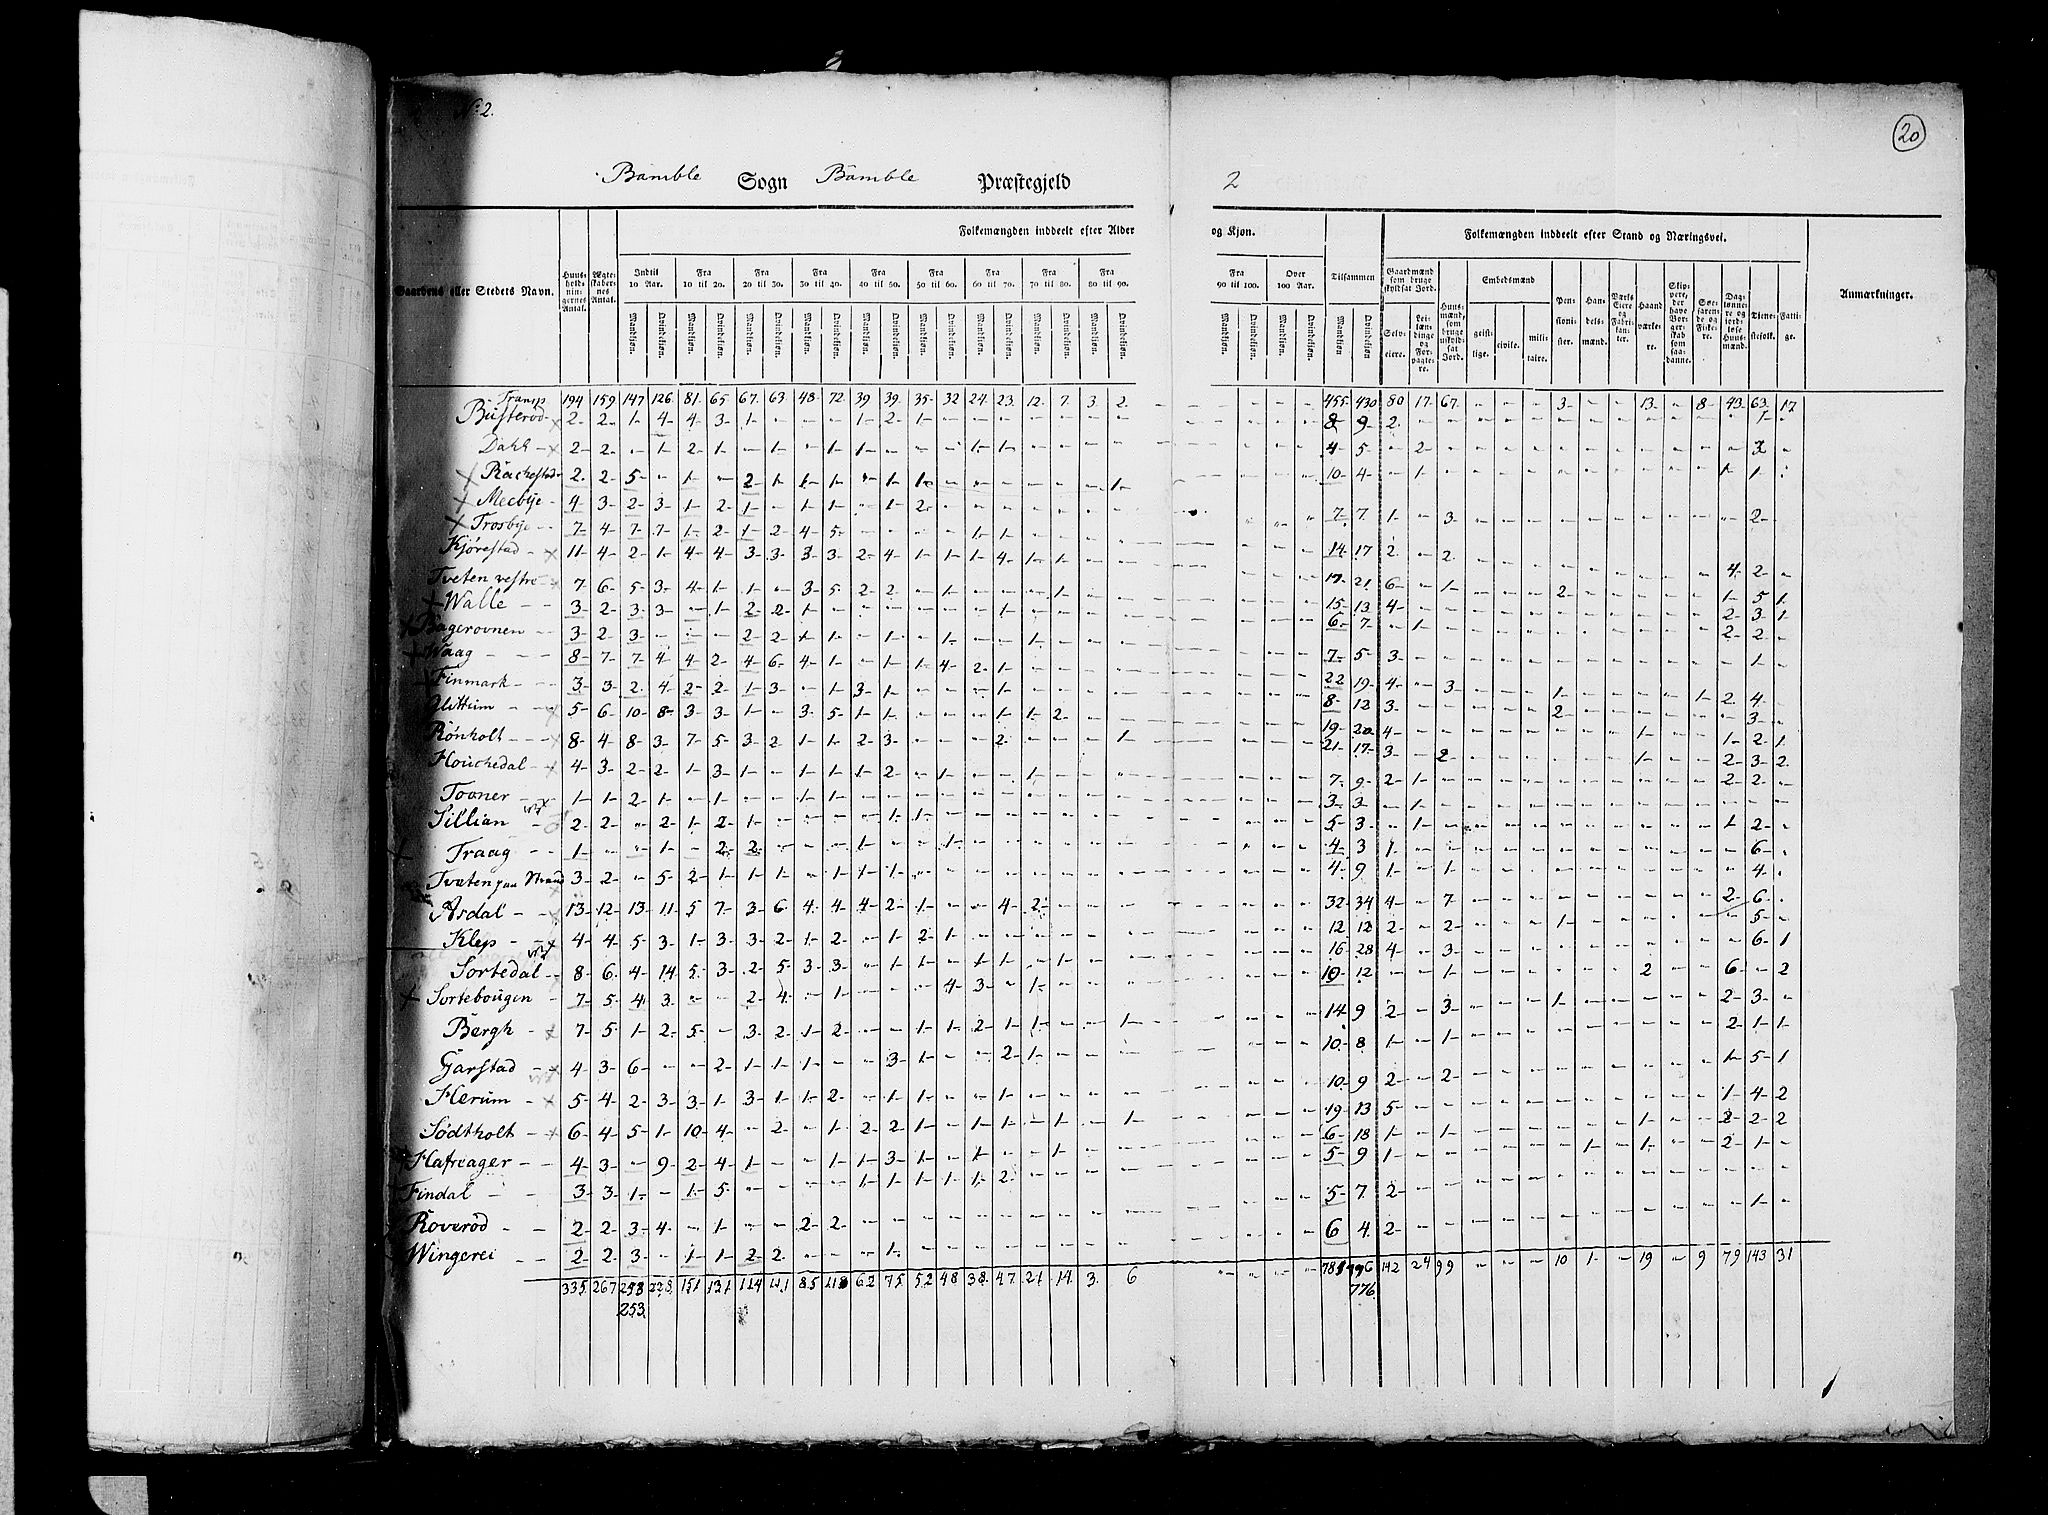 No 2.
20
Bamble Sogn Bamble Præstegjeld 2
Folkemængden inddeelt efter Alder og Kjøn. Folkemængden inddeelt efter Stand og Næringsvei.
Gaardens eller Stedets Navn. Huus-holdnin-gernes Antal. Ægte-skaber-nes Antal. Indtil 10 Aar. Fra 10 til 20. Fra 20 til 30. Fra 30 til 40. Fra 40 til 50. Fra 50 til 60. Fra 60 til 70. Fra 70 til 80. Fra 80 til 90. Fra 90 til 100. Over 100 Aar. Tilsammen Gaardmænd som bruge skyldsat Jord. Huus-mænd, som bruge uskyldsat Jord. Embedsmænd Pen-sioni-ster. Han-dels-mænd. Værks Eiere og Fabri-kan-ter. Haand værke-re. Skip-pere, der have Bor-ger-skab som saa-danne. Søe-faren-de og Fiske-re. Dag-lønne-re og jord-løse Huus-mænd. Tjene-stefolk. Fatti-ge. Anmærkninger.
Mandkjøn. Qvindekjøn. Selv-eiere. Lei-læn-dinge og For-pagte-re. geist-lige. civile. mili-taire.
Transp 194 159 147 126 81 65 67 63 48 72 39 39 35 32 24 23 12 7 3 2 455 430 80 17 67 3 13 8 43 63 17
Büsterød 2 2 1 4 4 3 1 - - - 1 2 1 8 9 2 1
Dahl 2 2 - 1 2 1 - 1 - 1 1 - - - 1 1 4 5 - 2
Rachestad 2 2 5 - 1 - 2 1 1 1 - 1 1 10 4 - 1 1 1
Meebye 4 3 2 3 1 2 1 - - - - 1 2 7 7 1 - 3 2
Trosbye 7 4 7 7 1 2 1 2 4 5 - - - - 1 1 14 17 2 - 2 4 2
Kjørestad 11 4 2 1 4 4 3 3 3 3 2 4 1 1 1 4 1 1 17 21 6 - 1 2 1 5 1
Tveten vestre 7 6 5 3 4 1 1 - 3 5 2 2 - 1 - - - 1 15 13 4 2 3 1
Walle 3 2 3 3 - 1 2 2 1 - - - - - - 1 6 7 - 1 2 2
Bagerovnen 3 2 3 - - - 2 2 1 1 - 1 - 1 - - 1 7 5 3 1
Waag 8 7 7 4 4 2 4 6 4 1 - 1 1 4 2 1 22 19 4 - 3 1 1 2 4
Finmark 3 3 2 4 2 2 1 3 - 1 3 1 - - - 1 8 12 3 2 3
5 6 10 8 3 3 1 - 3 5 1 1 - - - 1 1 2 19 20 4 1 1 2 1
Rönholt 8 4 8 3 7 5 3 2 1 1 2 3 - - - 2 - - - 1 21 17 3 - 2 1 2 3 2
Houchedal 4 3 2 2 1 3 1 - 1 1 1 2 - 1 - - 1 7 9 2 1 2 2
Tovner 1 1 2 1 - 1 - - 1 1 3 3 - 1
Sillian 2 2 - 2 1 2 1 - - - - 1 1 5 3 - 1 1 2
Traag 1 - - 1 - 2 2 - - - 1 - - 1 4 3 1 6
Tvæten paa Strand 3 2 - 5 2 1 1 1 - 1 1 1 4 9 1 - 1 4
Asdal 13 12 13 11 5 7 3 6 4 4 4 2 1 - - 4 2 32 34 4 - 7 2 6
Klep 4 4 5 3 1 3 3 2 1 2 - 1 2 1 12 12 2 - 2 1 5
Sortedal 8 6 4 14 5 3 2 5 3 3 - 1 1 - 1 1 - 1 16 28 4 - 3 6 1
Sortebougen 7 5 4 3 - - 2 4 - 1 - - - 4 3 - 1 10 12 - - 1 2 6 - 2
Bergh 7 5 1 2 5 - 3 2 1 2 - - 1 1 2 1 1 - - 1 14 9 2 - 3 1 2 3
Garstad 4 3 6 - - 2 1 1 1 - - 3 1 - - 2 1 10 8 1 - 1 2 1 1
Herum 5 4 2 3 3 1 3 1 1 2 - 1 1 - 1 1 10 9 2 - 2 1 5 1
Södtholt 6 4 5 1 10 4 - 2 - 1 2 2 1 - 1 1 1 1 - 1 19 13 5 1 4 2
Hafreager 4 3 - 9 2 4 1 - - 1 1 3 1 - 1 - - 1 6 18 1 - 1 1 2 2 2
Findal 3 3 1 - 1 5 - - - - 1 1 1 1 1 2 5 9 1 1 1 2 1
Roveröd 2 2 3 4 - 1 - - 2 2 5 7 2
Wingerei 2 2 3 - 1 1 2 2 - - - 1 6 4 2 1
335 267 258 228 151 131 114 111 85 118 62 75 52 48 38 47 21 14 3 6 142 24 99 10 1 19 9 79 143 31
253 776